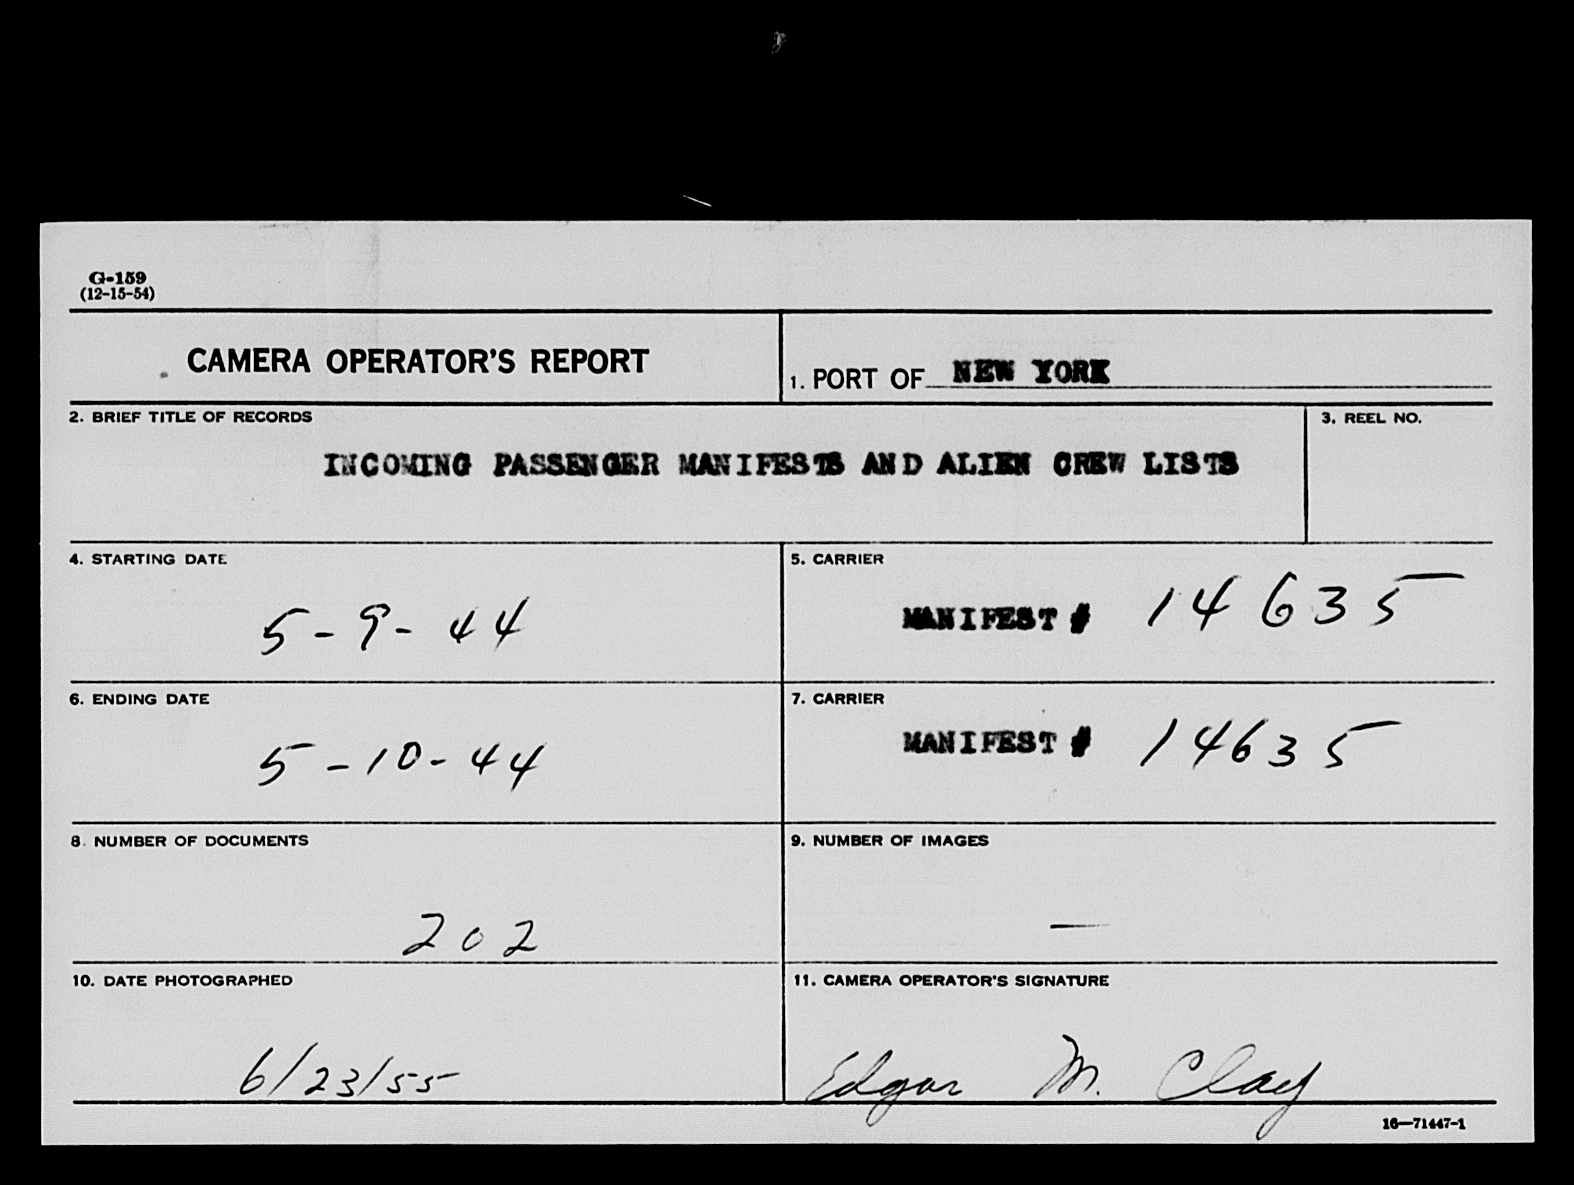 G-159
(12-15-54)
CAMERA OPERATOR'S REPORT
1. PORT OF NEW YORK
2. BRIEF TITLE OF RECORDS
3. REEL NO.
INCOMING PASSENGER MANIFESTS AND ALIEN CREW LISTS
4. STARTING DATE
5-9-44
5. CARRIER
MANIFEST # 14635
6. ENDING DATE
5-10-44
7. CARRIER
MANIFEST # 14635
8. NUMBER OF DOCUMENTS
202
9. NUMBER OF IMAGES
—
10. DATE PHOTOGRAPHED
6/23/55
11. CAMERA OPERATOR'S SIGNATURE
Edgar M. Clay
16—71447-1